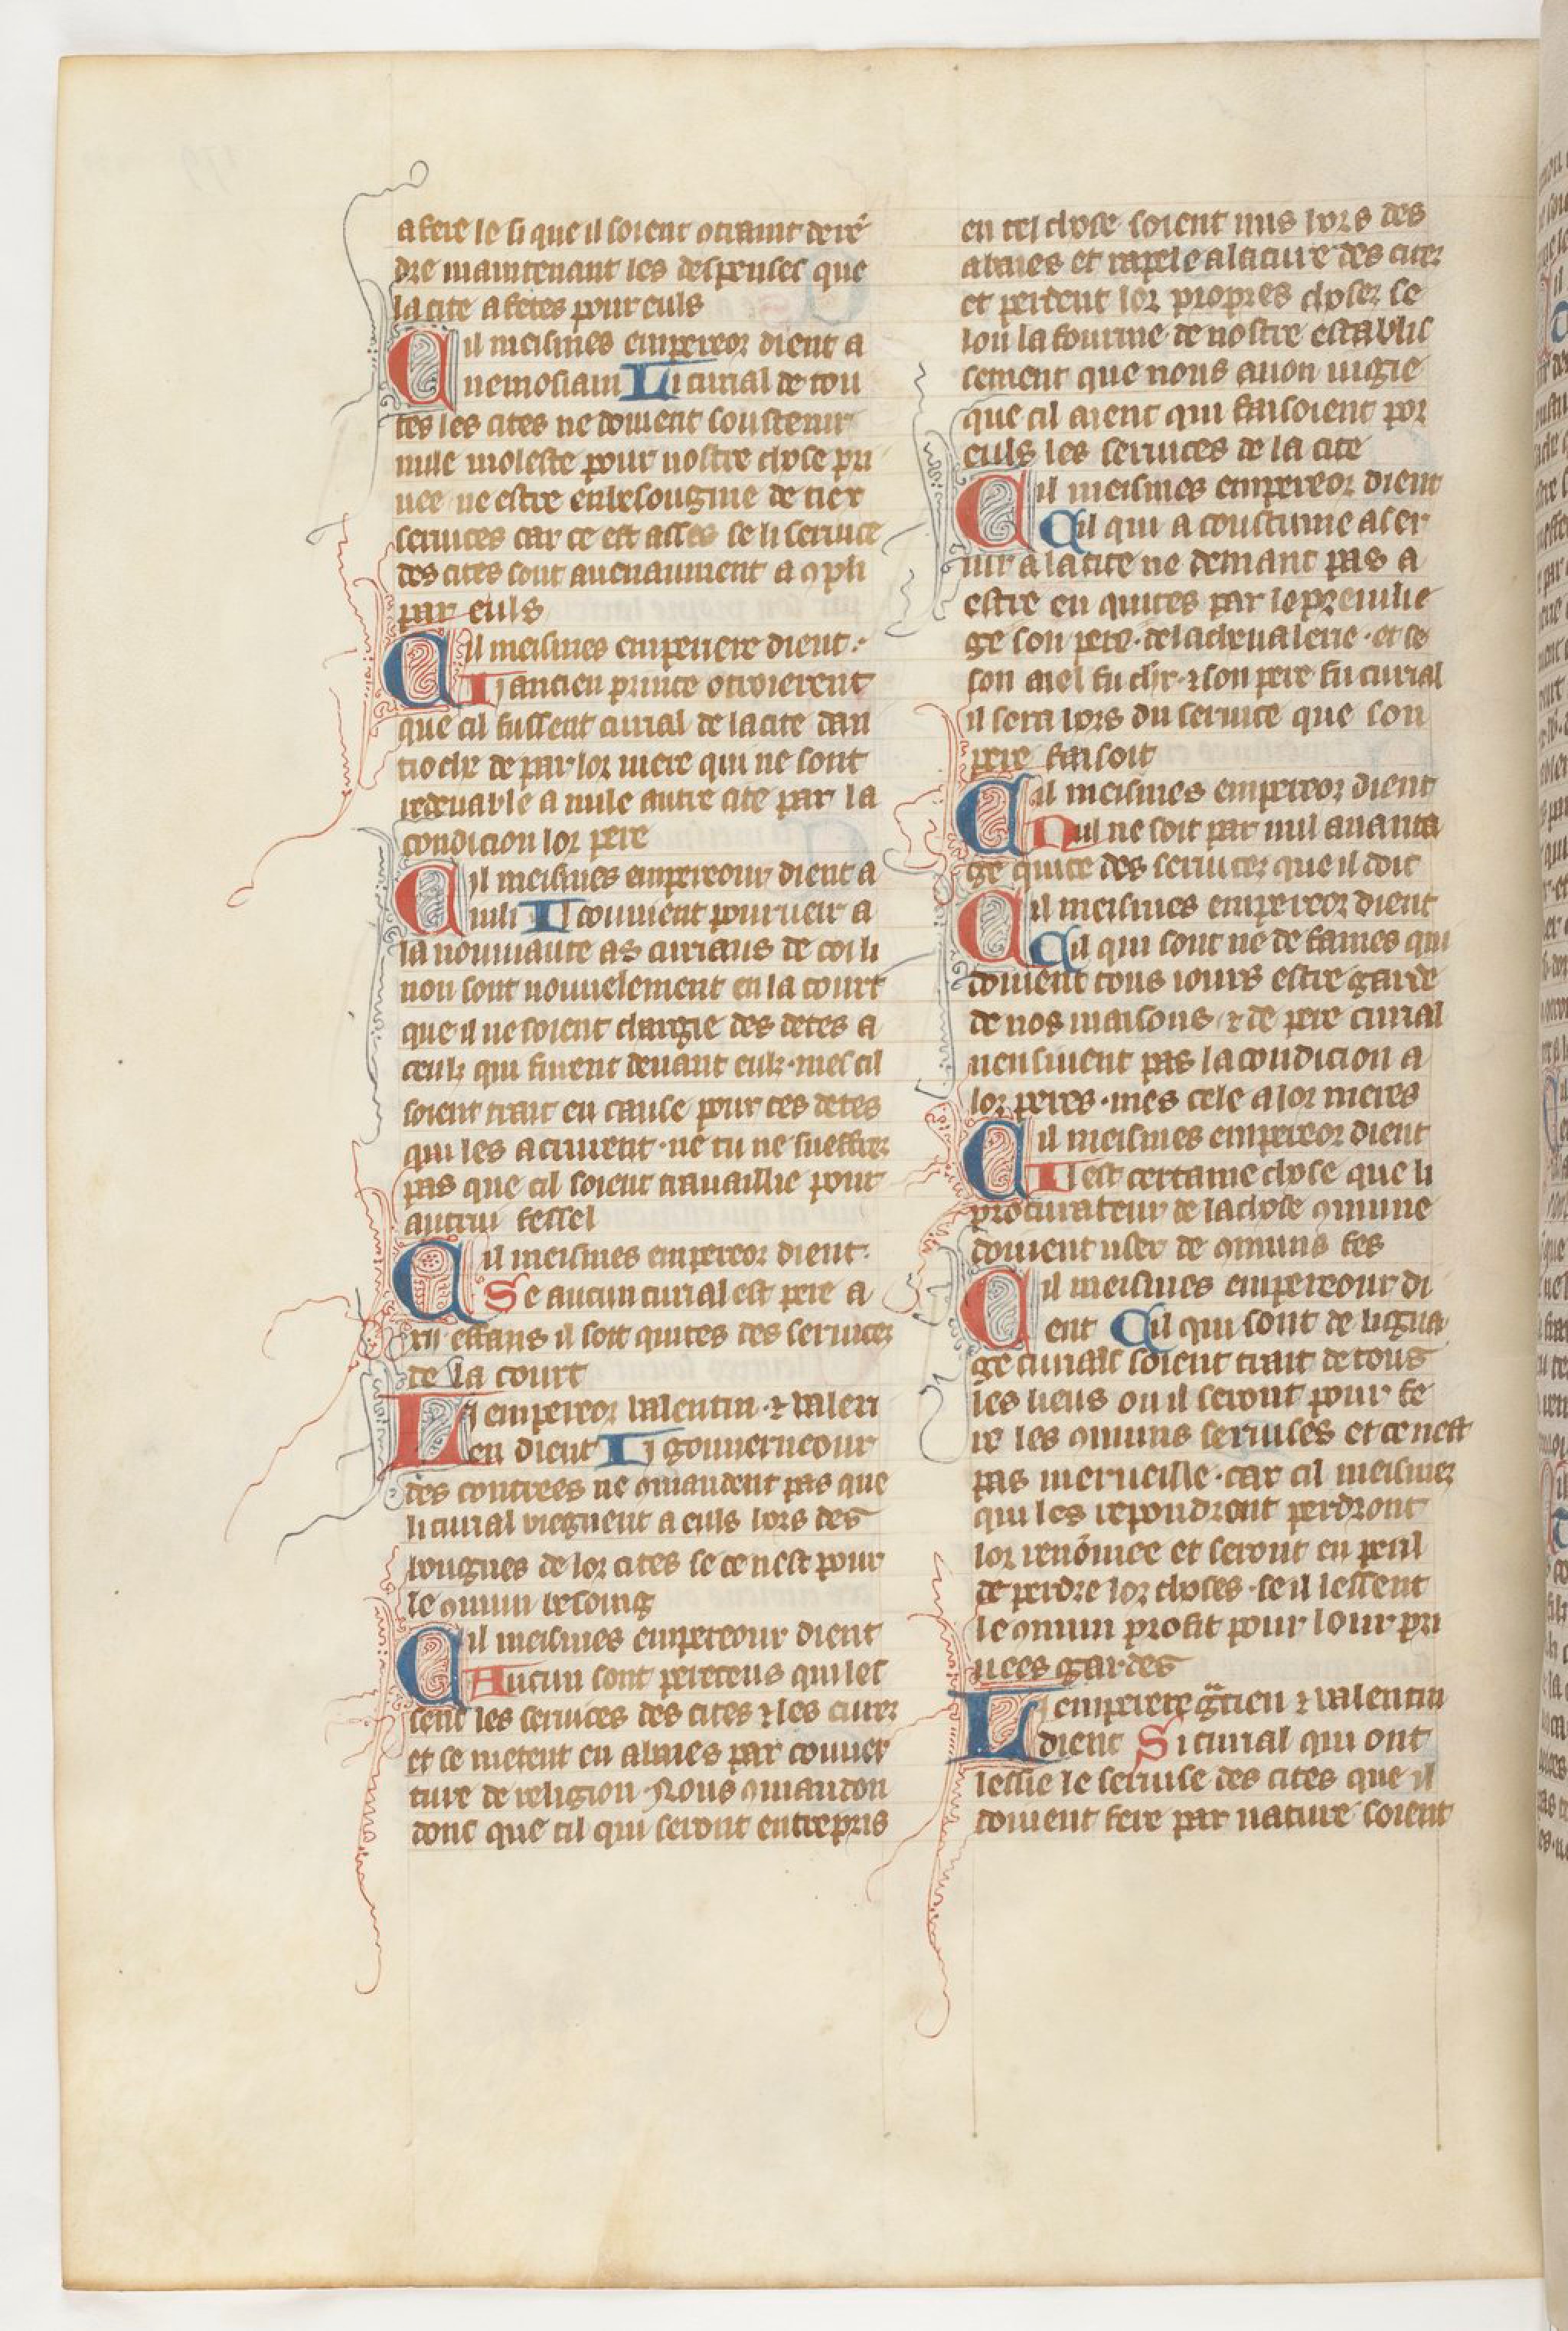 a fere le si que il soient otraint de rē
dre maintenant les despenses que
la cite a fetes pour euls
Cil meismes empereor dient a
nemosiam Li curial de tou
tes les cites ne doiuent soustenir
nule moleste pour nostre chose pri
uee ne estre en besougnie de tiex
seruices car ce est asses se li seruice
des cites sont auenaument aꝯpli
par euls
Cil meismes emperiere dient.
Li ancien prince otroierent
que cil fussent curial de la cite dan
tioche de par lor mere qui ne sont
redeuable a nule autre cite par la
condicion lor pere
Cil meismes empereour dient a
iuli Il couuient pourueir a
la nouuiaute as curiaus de coi li
non sont nouuelement en la court
que il ne soient chargie des detes a
ceulz qui furent deuant eulz. mes cil
soient trait en cause pour ces detes
qui les acrurent. ne tu ne sueffrez
pas que cil soient trauaillie pour
autrui fessel
Cil meismes empereor dient.
Se aucun curial est pere a
xii effans il soit quites des seruicez
de la court
Li empereor valentin ⁊ valeri
en dient Li gouuerneour
des contrees ne ꝯmandent pas que
li curial viegnent a euls hors des
bougnes de lor cites se ce nest pour
le ꝯmun besoing
Cil meismes empereour dient
Aucun sont pereceus qui les
sent les seruices des cites ⁊ les curez
et se metent en abaies par couuer
ture de religion. Nous ꝯmandon
donc que cil qui seront entrepris
en tel chose soient mis hors des
abaies et rapele a la cure des citez
et perdent lor propres chosez se
lon la fourme de nostre establis
sement que nous auon iugie
que cil aient qui faisoient por
euls les seruices de la cite
Cil meismes empereor dient
Cil qui a coustume a ser
uir a la cite ne demant pas a
estre en quites par le preuilie
ge son pere. de la cheualerie. et se
son aiel fu chr̄. ⁊ son pere fu curial
il sera hors du seruice que son
pere faisoit
Cil meismes empereor dient
Nul ne soit par nul auanta
ge quite des seruicez que il doit
Cil meismes empereor dient
Cil qui sont ne de fames qui
doiuent tous iours estre garde
de nos maisons. ⁊ de pere curial
nensiuent pas la condicion a
lor peres. mes cele a lor meres
Cil meismes empereor dient
Il est certaine chose que li
procurateur de la chose ꝯmune
doiuent user de ꝯmuns fes
Cil meismes empereour di
ent Cil qui sont de ligna
ge curials soient trait de tous
les lieus ou il seront pour fe
re les ꝯmuns seruises et ce nest
pas merueille. car cil meismez
qui les repondront perdront
lor renōmee et seront en peril
de perdre lor choses. se il lessent
le ꝯmun profit pour lour pri
uees gardes
Li emperere gͣcien ⁊ valentin
dient Si curial qui ont
lessie le seruise des cites que il
doiuent fere par nature soient